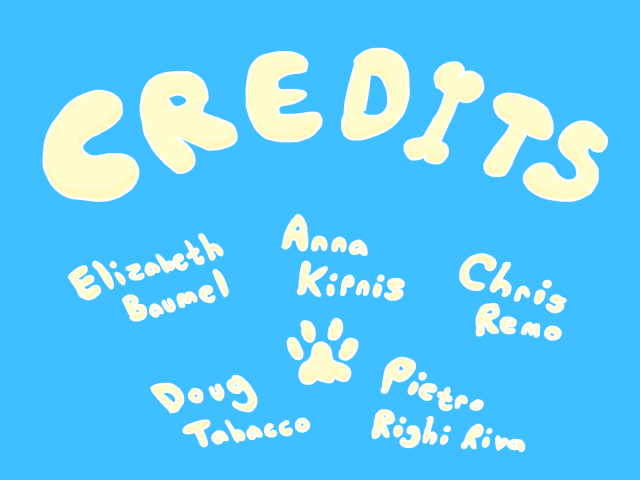 CREDITS
Elizabeth
Baumel
Anna
Kipnis
Chris
Remo
Doug
Tabacco
Pietro
Righi Riva